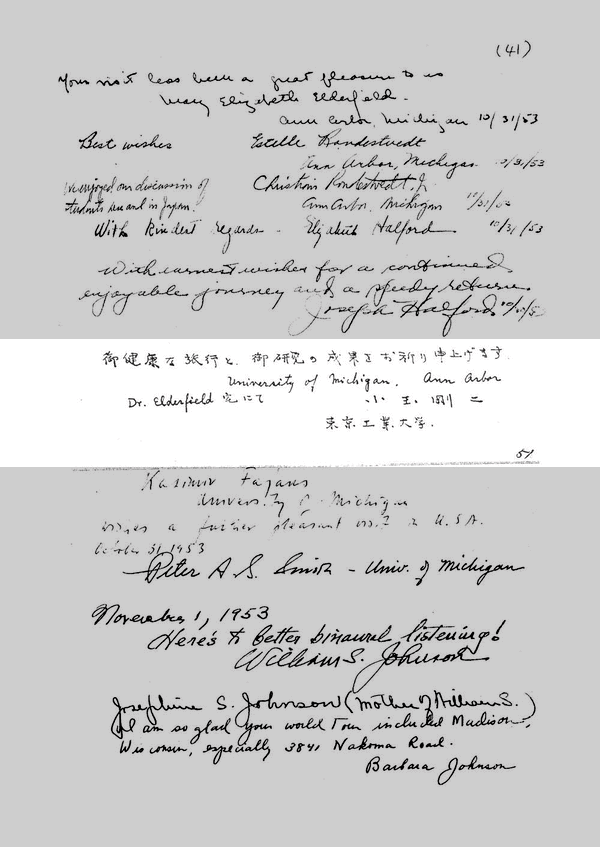 (41)
Your visit has been a great pleasure to us
Mary Elizabeth Elderfield.
Ann Arbor, Michigan 10/31/53
Best wishes Estelle Rondestvedt
Ann Arbor, Michigan 10/31/53
We enjoyed our discussion of Christian Rondestvedt, Jr.
students here and in Japan. Ann Arbor, Michigan 10/31/53
With kindest regards - Elizabeth Halford 10/31/53
With earnest wishes for a continued
enjoyable journey and a speedy return.
Joseph Halford 10/31/53
御健康な旅行と、御研究の成果をお祈り申上げます.
University of Michigan, Ann Arbor
Dr. Elderfield 宅にて 小玉剛二
東京工業大学.
51
Kasimir Fajans
University of Michigan
wishes a further pleasant visit in U.S.A.
October 31, 1953
Peter A. S. Smith - Univ. of Michigan
November 1, 1953
Here's to better binaural listening!
William S. Johnson
Josephine S. Johnson (Mother of William S.)
(I am so glad your world tour included Madison,
Wisconsin, especially 3841 Nakoma Road.
Barbara Johnson